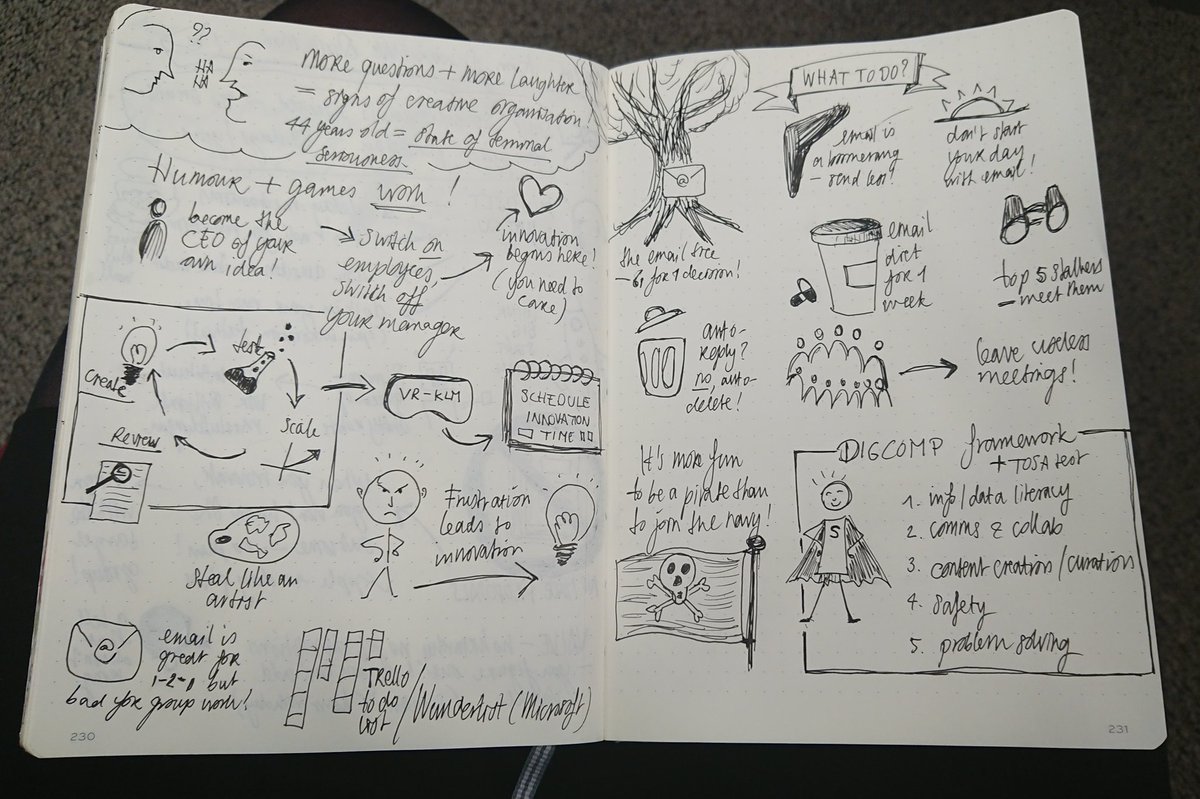 ??
HA
HA
More questions + more laughter
= signs of creative organisation!
44 years old = state of terminal
seriousness
Humour + games work!
become the
CEO of your
own idea!
switch on
employees,
switch off
your manager
innovation
begins here!
(you need to
care)
create
test
Scale
Review
VR-KLM
SCHEDULE
INNOVATION
TIME
Steal like an
artist
Frustration
leads to
innovation
@
email is
great for
1-2-1 but
bad for group work!
Trello
to do
list
/Wunderlist (Microsoft)
230
@
the email tree
- 61 for 1 decision!
WHAT TO DO?
email is
a boomerang
- send less!
don't start
your day
with email!
email
diet
for 1
week
top 5 stalkers
- meet them
auto-
reply?
no, auto-
delete!
leave useless
meetings!
It's more fun
to be a pirate than
to join the navy!
DIGCOMP framework
+ TOSA test
S
1. info/data literacy
2. comms & collab
3. content creation/curation
4. safety
5. problem solving
231